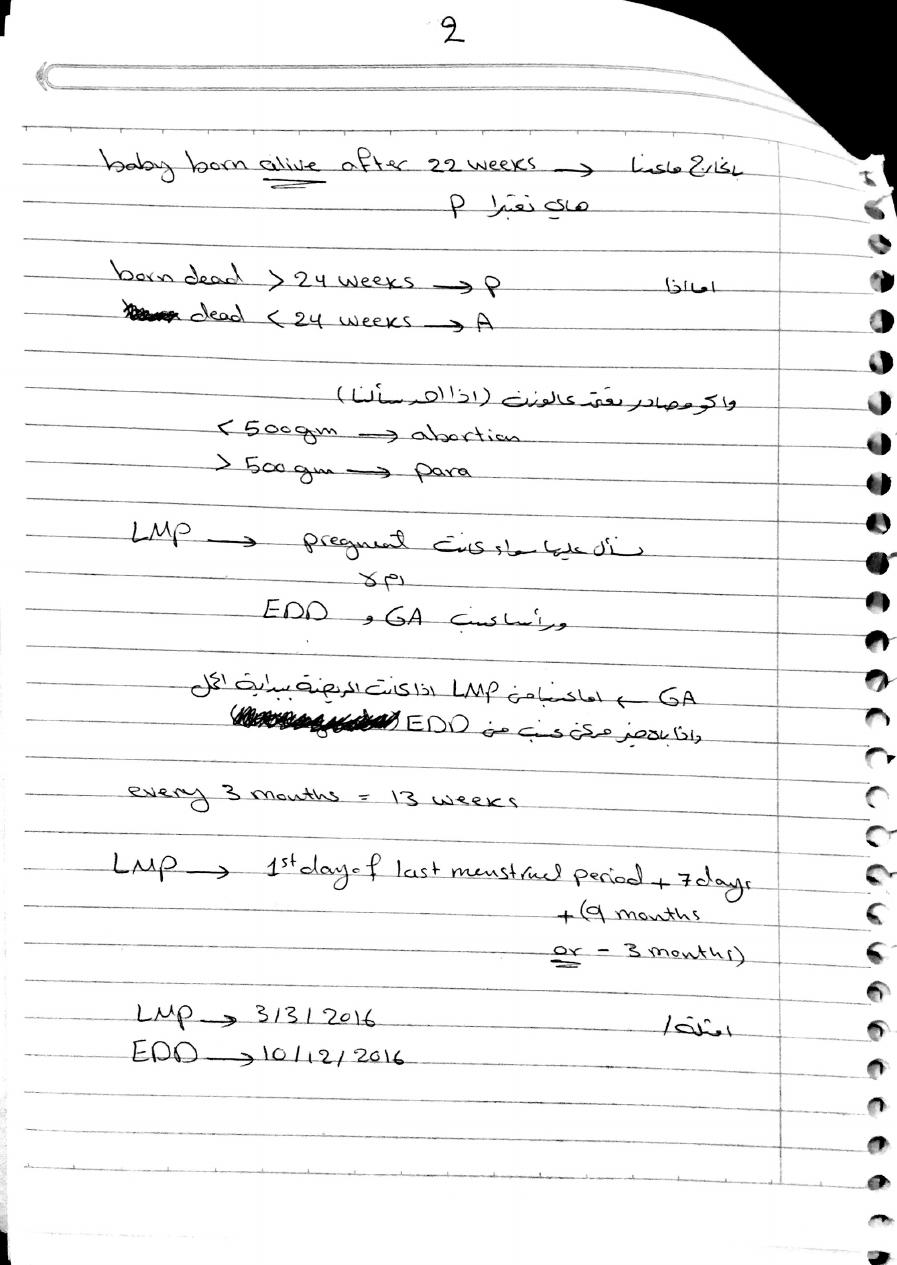 2
baby born alive after 22 weeks → بالخارج ماعدنا
هاي نعتبرا P
اما اذا born dead > 24 weeks → P
dead < 24 weeks → A
واكو مصادر تعتمد عالوزن (اذا احد سألنا)
< 500gm → abortion
> 500gm → para
LMP → نسأل عليها سواء كانت pregnant
ام لا
وراسا نحسب GA و EDD
GA ← اما نحسبها من LMP اذا كانت المريضة ببداية الحمل
واذا بالاخير ممكن نحسب من EDD
every 3 months = 13 weeks
LMP → 1st day of last menstrual period + 7 days
+ (9 months
or - 3 months)
امثلة/ LMP → 3/3/2016
EDD → 10/12/2016